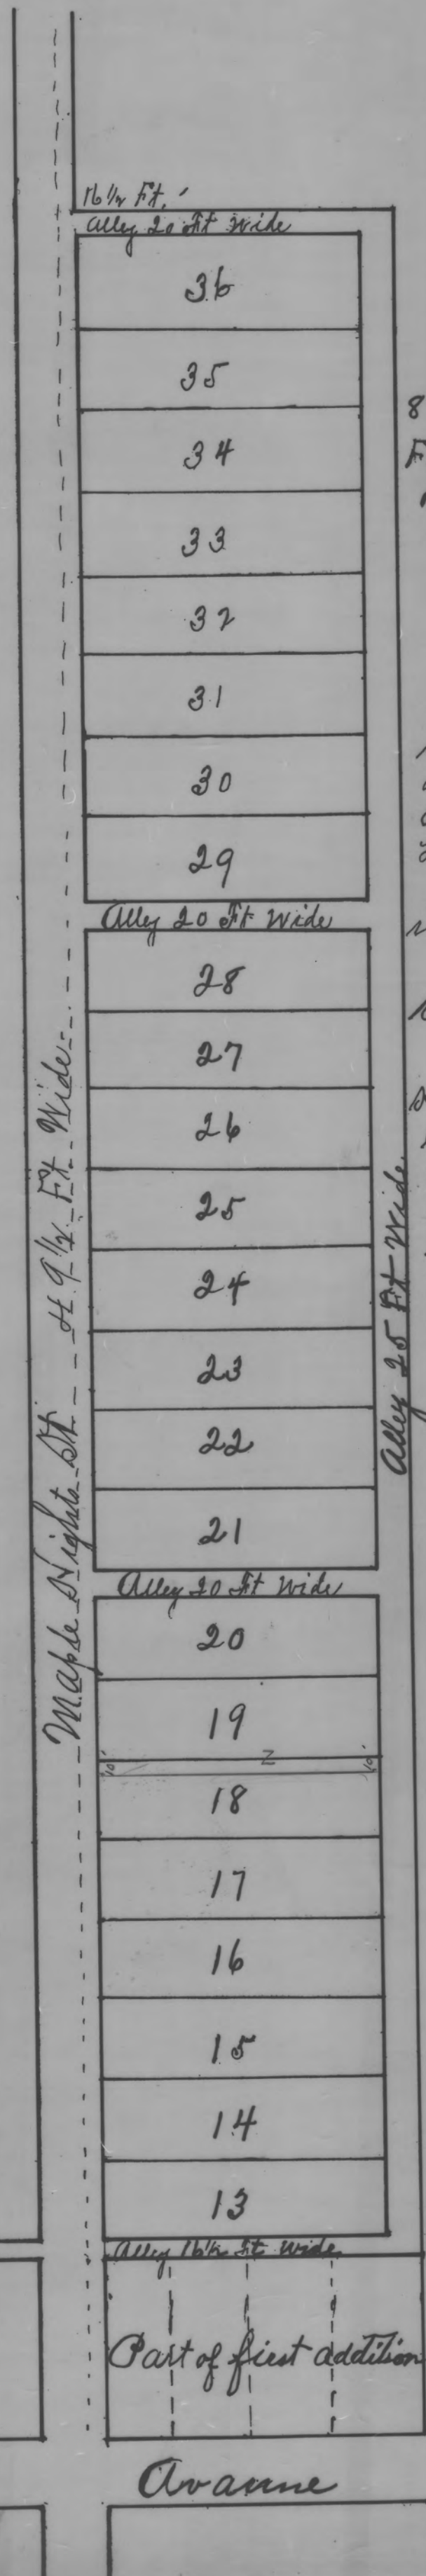 16 1/2 Ft.
Alley 20 Ft Wide
36
35
34
33
32
31
30
29
Alley 20 Ft Wide
28
27
26
25
24
23
22
21
Alley 20 Ft Wide
20
19
10' Z 10'
18
17
16
15
14
13
Alley 16 1/2 Ft Wide
Part of first addition
Avanue
Maple Hights St. 49 1/2 Ft. Wide
Alley 25 Ft Wide
8
F